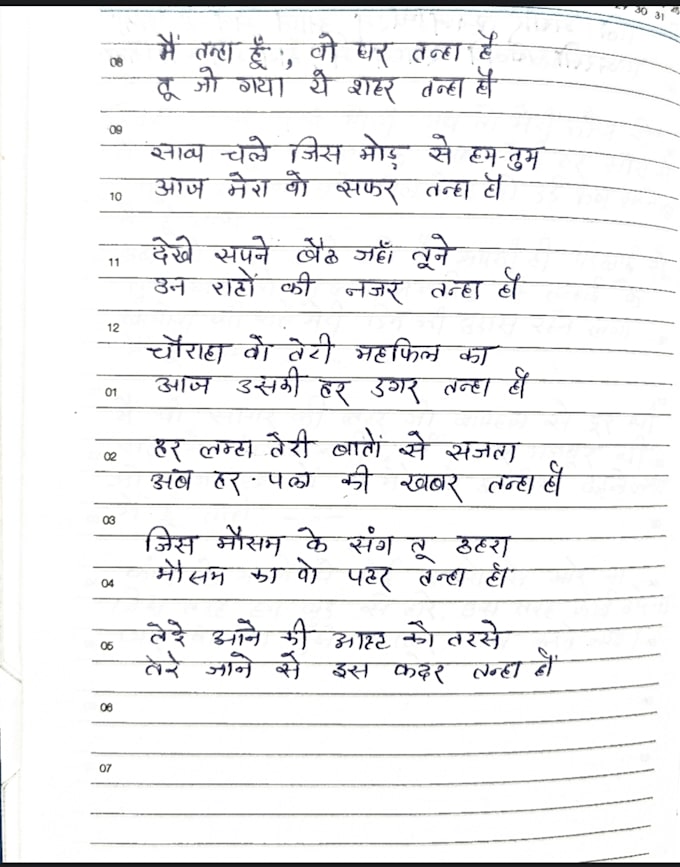 29 30 31
08 मैं तन्हा हूँ, वो घर तन्हा है
तू जो गया ये शहर तन्हा है
09
साथ चले जिस मोड़ से हम-तुम
10 आज मेरा वो सफर तन्हा है
11 देखे सपने बैठ जहाँ तूने
उन राहों की नजर तन्हा है
12
चौराहा वो तेरी महफिल का
01 आज उसकी हर डगर तन्हा है
02 हर लम्हा तेरी बातों से सजता
अब हर पल की खबर तन्हा है
03
जिस मौसम के संग तू ठहरा
04 मौसम का वो पहर तन्हा है
05 तेरे आने की आहट को तरसे
तेरे जाने से इस कदर तन्हा है
06
07